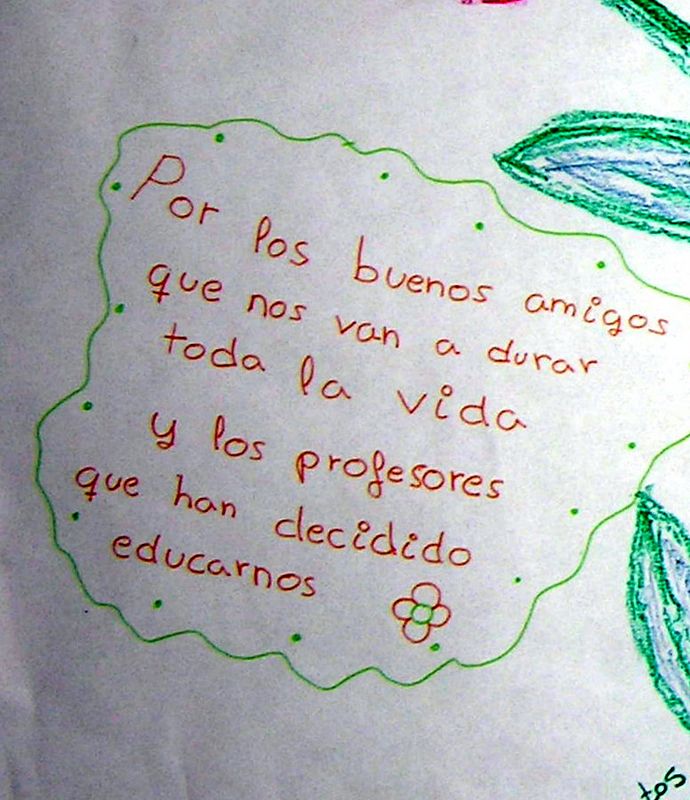 Por los buenos amigos
que nos van a durar
toda la vida
y los profesores
que han decidido
educarnos